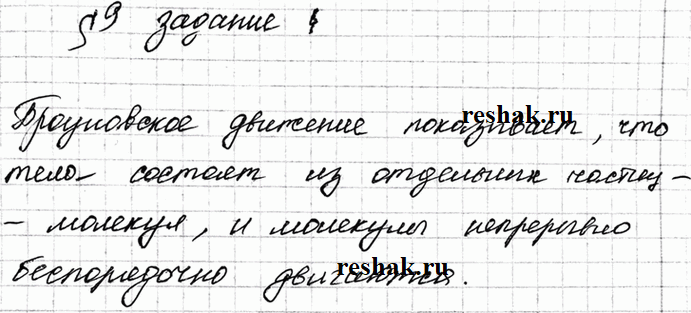 §9 задание
Броуновское движение показывает, что
reshak.ru
тела состоят из отдельных частиц -
- молекул, и молекулы непрерывно
беспорядочно двигаются.
reshak.ru